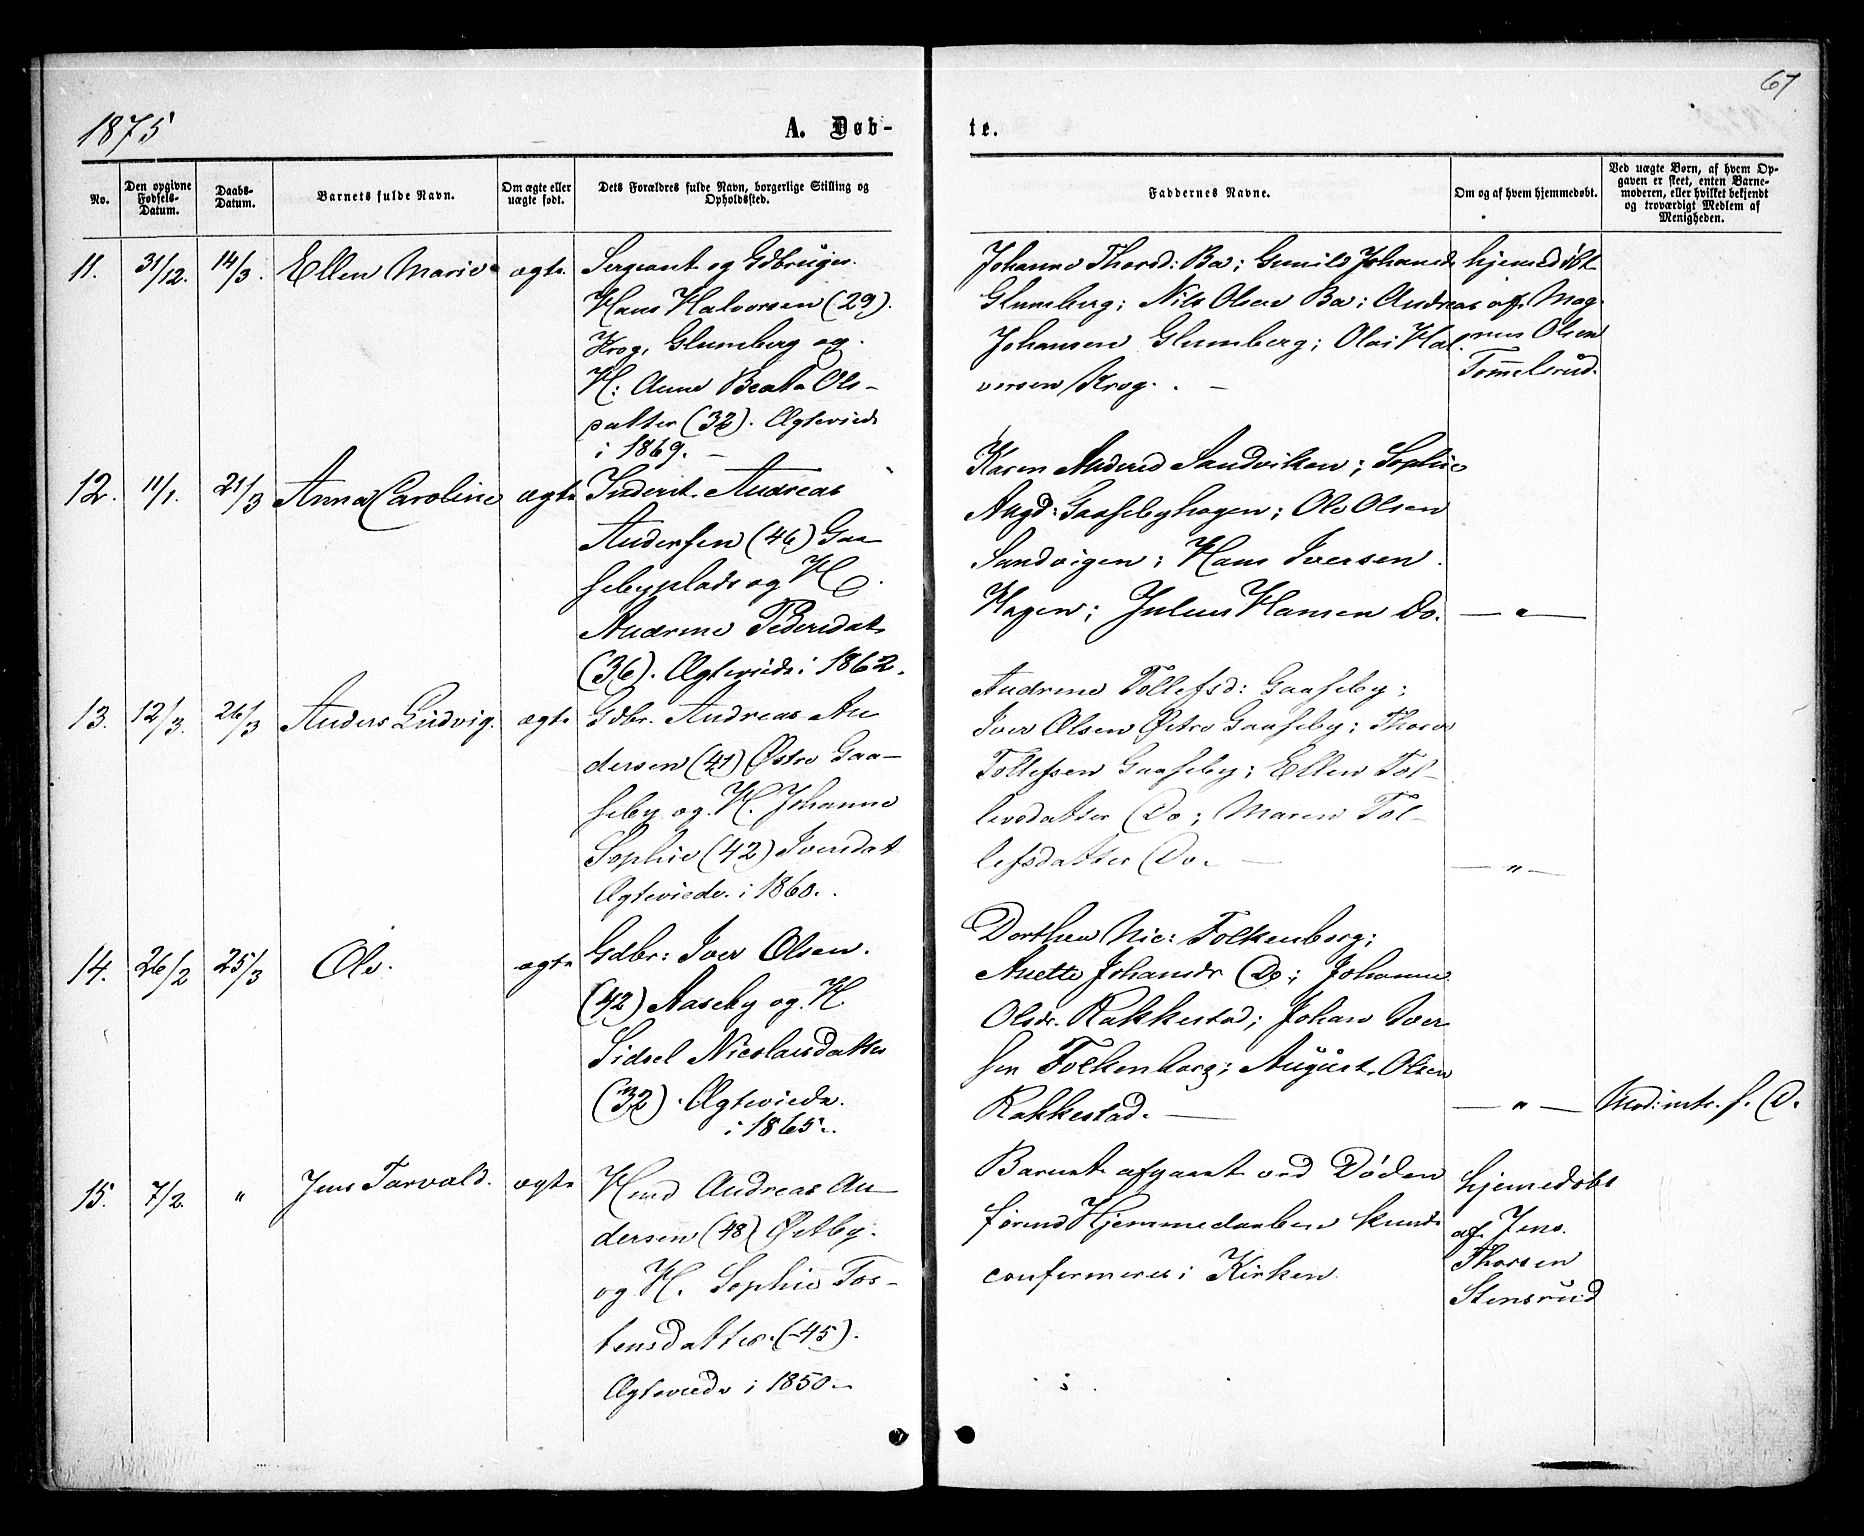 67
1875
A. Døb-
te.
No.
Den opgivne
Fødsels-
Datum.
Daabs-
Datum.
Barnets fulde Navn.
Om ægte eller
uægte født.
Dets Forældres fulde Navn, borgerlige Stilling og
Opholdssted.
Faddernes Navne.
Om og af hvem hjemmedøbt.
Ved uægte Børn, af hvem Op-
gaven er skeet, enten Barne-
moderen, eller hvilket bekjendt
og troværdigt Medlem af
Menigheden.
11. 31/12. 14/3. Ellen Marie ægte
Sergeant og Gdbruger
Hans Halvorsen (29).
Krog, Glumberg og
H: Anne Beate Ols-
datter (32). Ægteviede
i 1869. –
Johanne Thorsd: Ba; Gunild Johansd
Glumberg; Nils Olsen Ba; Andreas
Johansen Glumberg; Olai Hal-
vorsen Krog. –
hjemedøbt
af Mag-
nus Olsen
Tommelsrud.
12. 11/1. 21/3 Anna Caroline ægte
Inderst. Andreas
Andersen (46) Gaa-
sebyplads og H.
Andrine Pedersdat
(36). Ægteviede i 1862.
Karen Andersd Sandviken; Sophie
Aagd: Gaasebyhagen; Ole Olsen
Sandvigen; Hans Iversen
Hagen; Julius Hansen Do.
— „ —
13. 12/3. 26/3 Anders Ludvig. ægte
Gdbr. Andreas An
dersen (41) Østre Gaa-
seby og H. Johanne
Sophie (42) Iversdat
Ægteviede i 1860.
Andrine Tollefsd: Gaaseby;
Iver Olsen Østre Gaaseby; Thorvs
Tollefsen Gaaseby; Ellen Tol-
levsdatter Do; Maren Tol-
lefsdatter Do. —
— „ —
14. 26/2 25/3 Ole. ægte
Gdbr: Iver Olsen.
(42) Aaseby og H.
Sidsel Nicolaisdatter
(32). Ægteviede.
i 1865.
Dorthea Nic: Folkenborg;
Anette Johansdr Do; Johanne
Olsdr. Rakkestad; Johan Iver
sen Folkenborg; August Olsen
Rakkestad. —
— „ —
Mod: intr. f. D.
15. 7/2. „ Jens Torvald. ægte
Hmd Andreas An-
dersen (48) Østby.
og H. Sophie Tos-
tensdatter. (45).
Ægteviede i 1850 –
Barnet afgaaet ved Døden
førend Hjemmedaaben kunde
confermeres i Kirken
hjemedøbt
af Jens
Thorsen
Stensrud